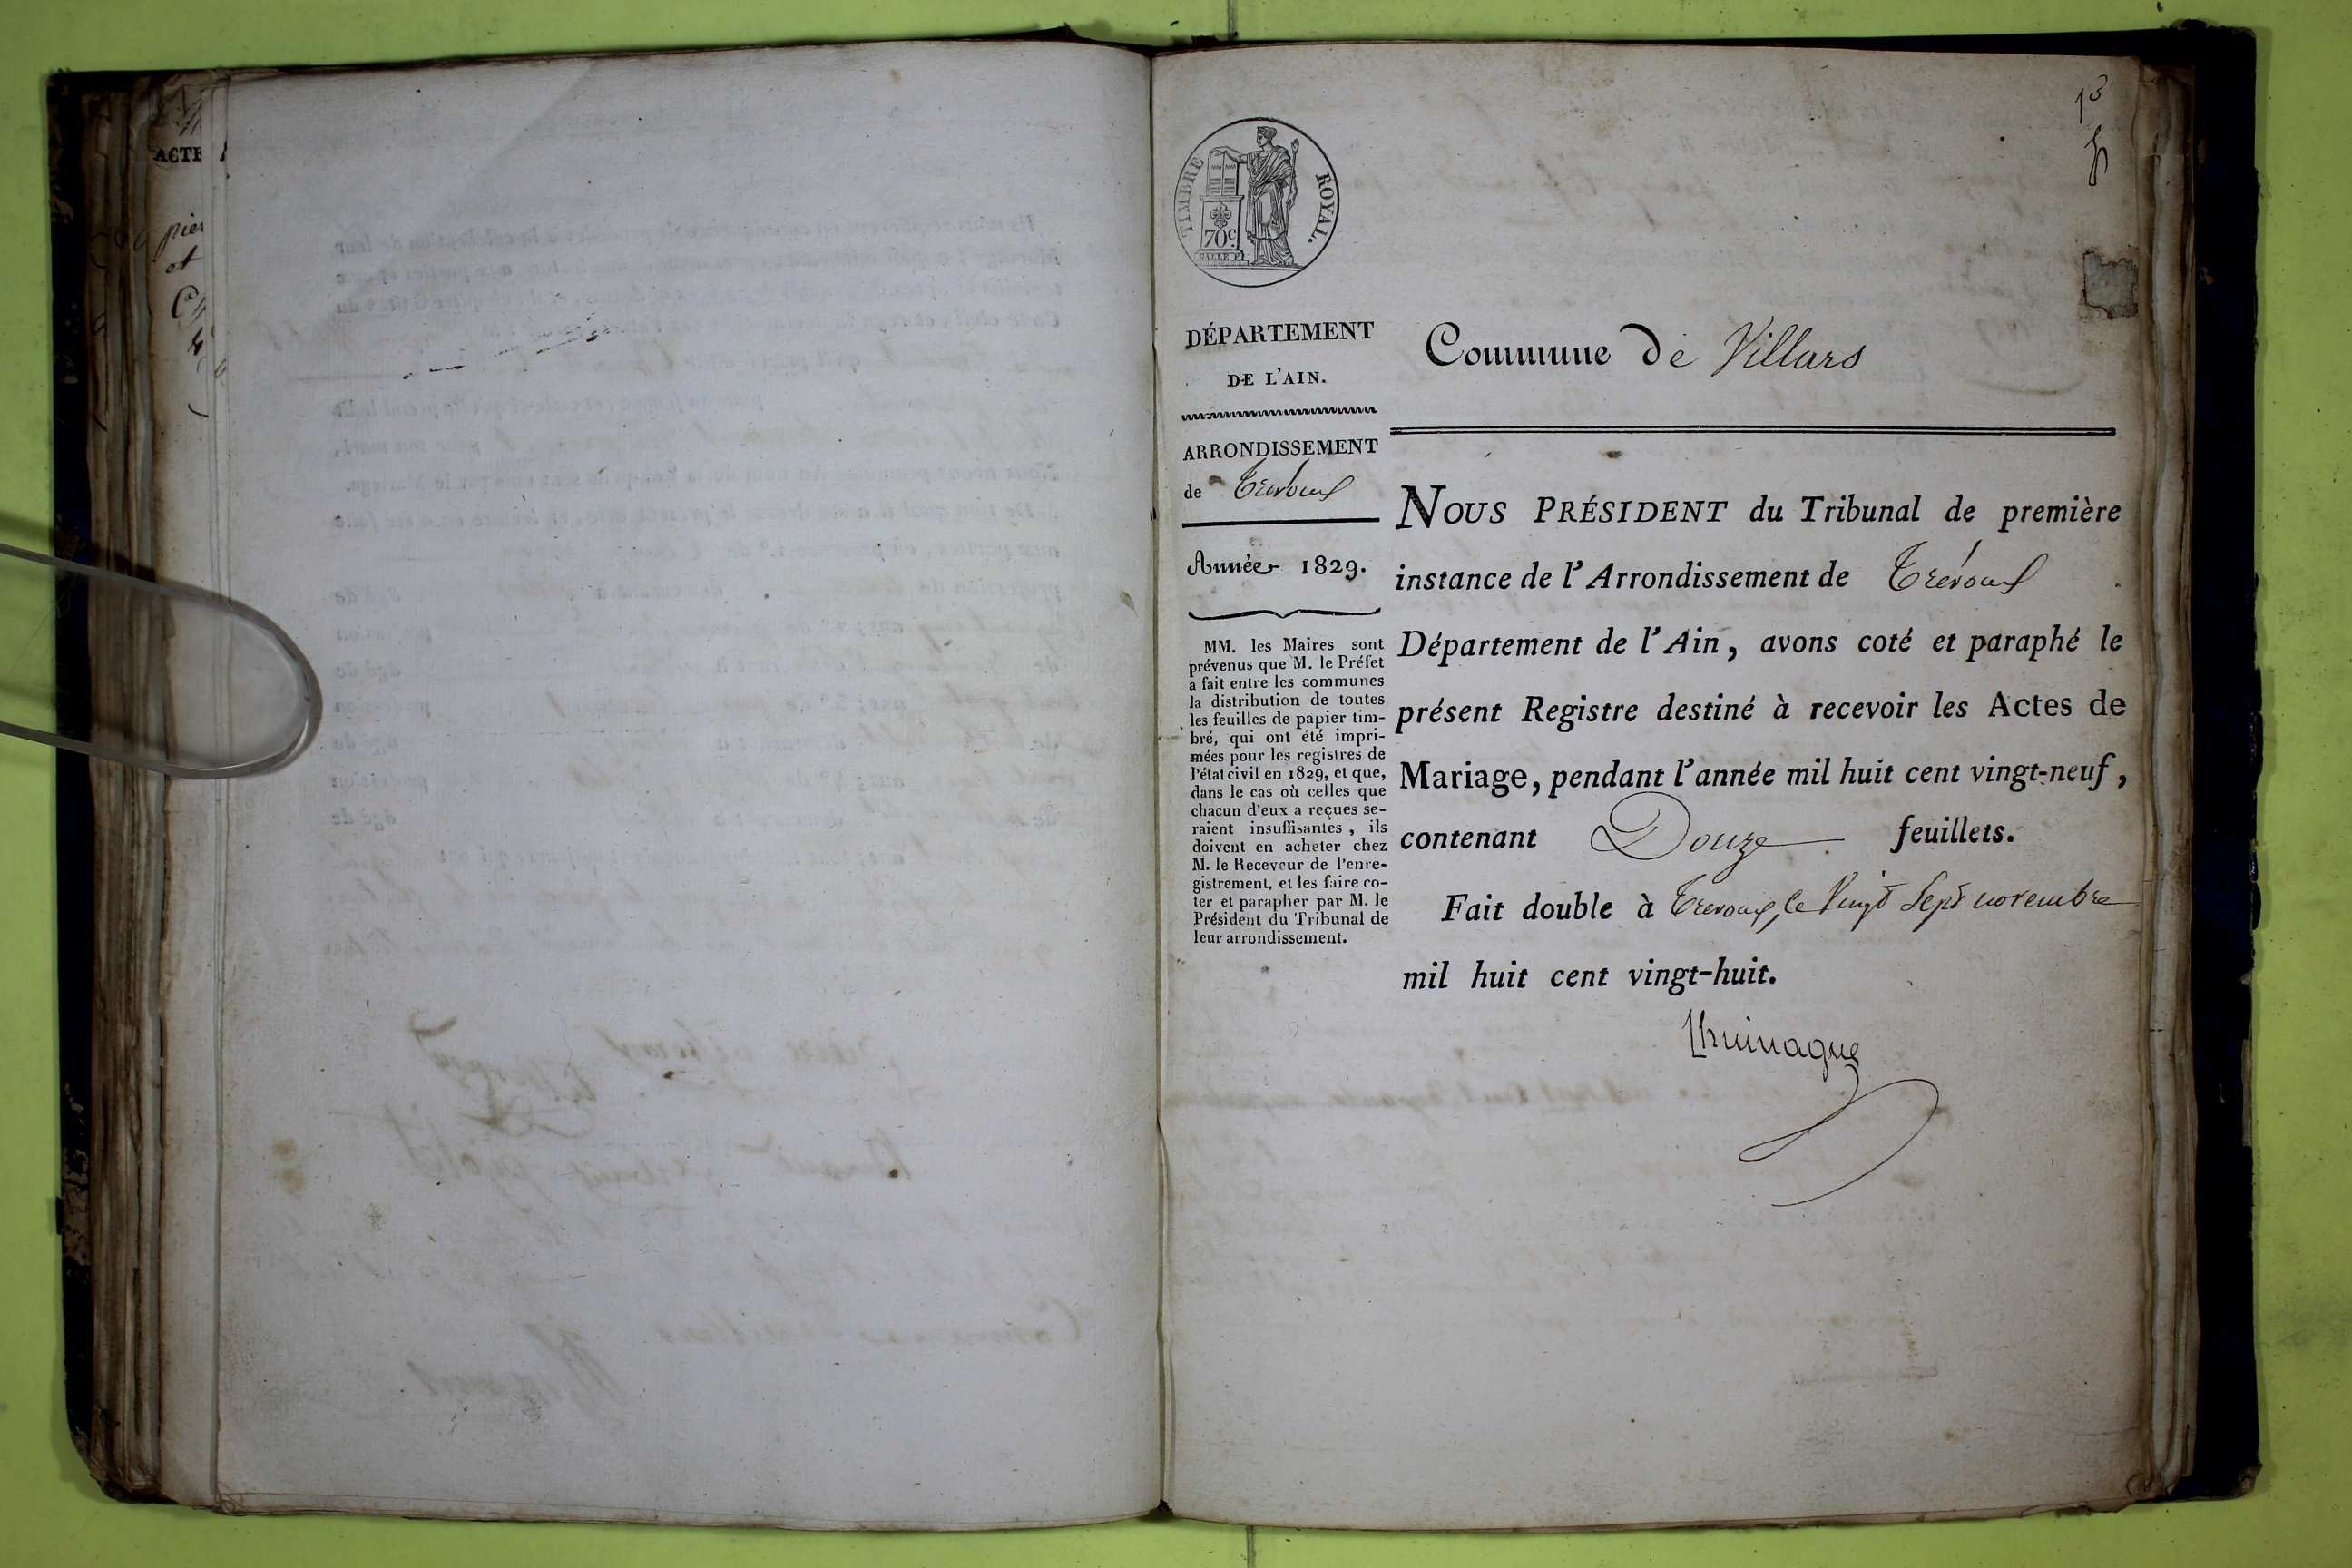 ACTE
pier
et
TIMBRE ROYAL.
70c
DÉPARTEMENT
DE L'AIN.
ARRONDISSEMENT
de Trévoux
Année 1829.
MM. les Maires sont
prévenus que M. le Préfet
a fait entre les communes
la distribution de toutes
les feuilles de papier tim-
bré, qui ont été impri-
mées pour les registres de
l'état civil en 1829, et que,
dans le cas où celles que
chacun d'eux a reçues se-
raient insuffisantes, ils
doivent en acheter chez
M. le Receveur de l'enre-
gistrement, et les faire co-
ter et parapher par M. le
Président du Tribunal de
leur arrondissement.
Commune de Villars
NOUS PRÉSIDENT du Tribunal de première
instance de l'Arrondissement de Trévoux
Département de l'Ain, avons coté et paraphé le
présent Registre destiné à recevoir les Actes de
Mariage, pendant l'année mil huit cent vingt-neuf,
contenant Douze feuillets.
Fait double à Trevoux, le Vingt Sept novembre
mil huit cent vingt-huit.